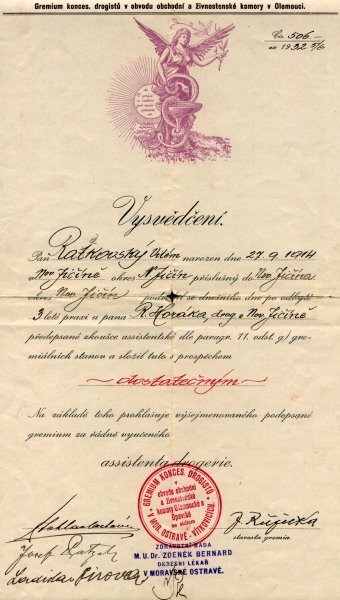 Gremium konces. drogistů v obvodu obchodní a živnostenské komory v Olomouci.
Čís. 506.-
1932 5/6
Vysvědčení.
Pan Raškovský Vilém narozen dne 27. 9. 1914
v Nov. Jičíně okres N. Jičín příslušný do Nov. Jičína
okres Nov. Jičín podrobil se dnešního dne po odbyté
3 leté praxi u pana R. Horáka, drog. v Nov. Jičíně
předepsané zkoušce assistentské dle paragr. 11. odst. g) gre-
miálních stanov a složil tuto s prospěchem
— dostatečným —
Na základě toho prohlašuje výšejmenovaného podepsané
gremium za řádně vyučeného
assistenta drogerie.
GREMIUM KONCES. DROGISTŮ
v obvodu obchodní
a živnostenské
komory Olomoucké a
Opavské
se sídlem
V MOR. OSTRAVĚ-VÍTKOVICÍCH
J. Růžička
starosta gremia
Josef
Ladislav
ZDRAVOTNÍ RADA
M. U. Dr. ZDENĚK BERNARD
OKRESNÍ LÉKAŘ
V MORAVSKÉ OSTRAVĚ.